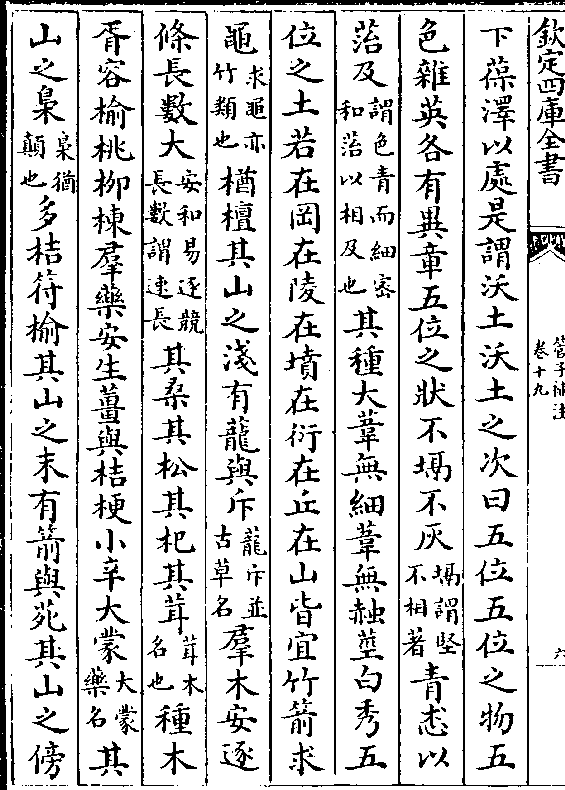 欽定四庫全書
管子補注
卷十九
六
下葆澤以處是謂沃土沃土之次曰五位五位之物五
色雜英各有異章五位之狀不塥不灰塥謂堅不相著青恙以
菭及謂色青而細密和菭以相及也其種大葦無細葦無赨莖白秀五
位之土若在岡在陵在墳在衍在丘在山皆宜竹箭求
黽求黽亦竹類也楢檀其山之淺有蘢與斥蘢斥並古草名羣木安逐
條長數大安和易逐競長數謂速長其桑其松其杞其茸茸木名也種木
胥容榆桃栁楝羣藥安生薑與桔梗小辛大蒙大蒙藥名其
山之梟梟猶顛也多桔符榆其山之末有箭與苑其山之傍